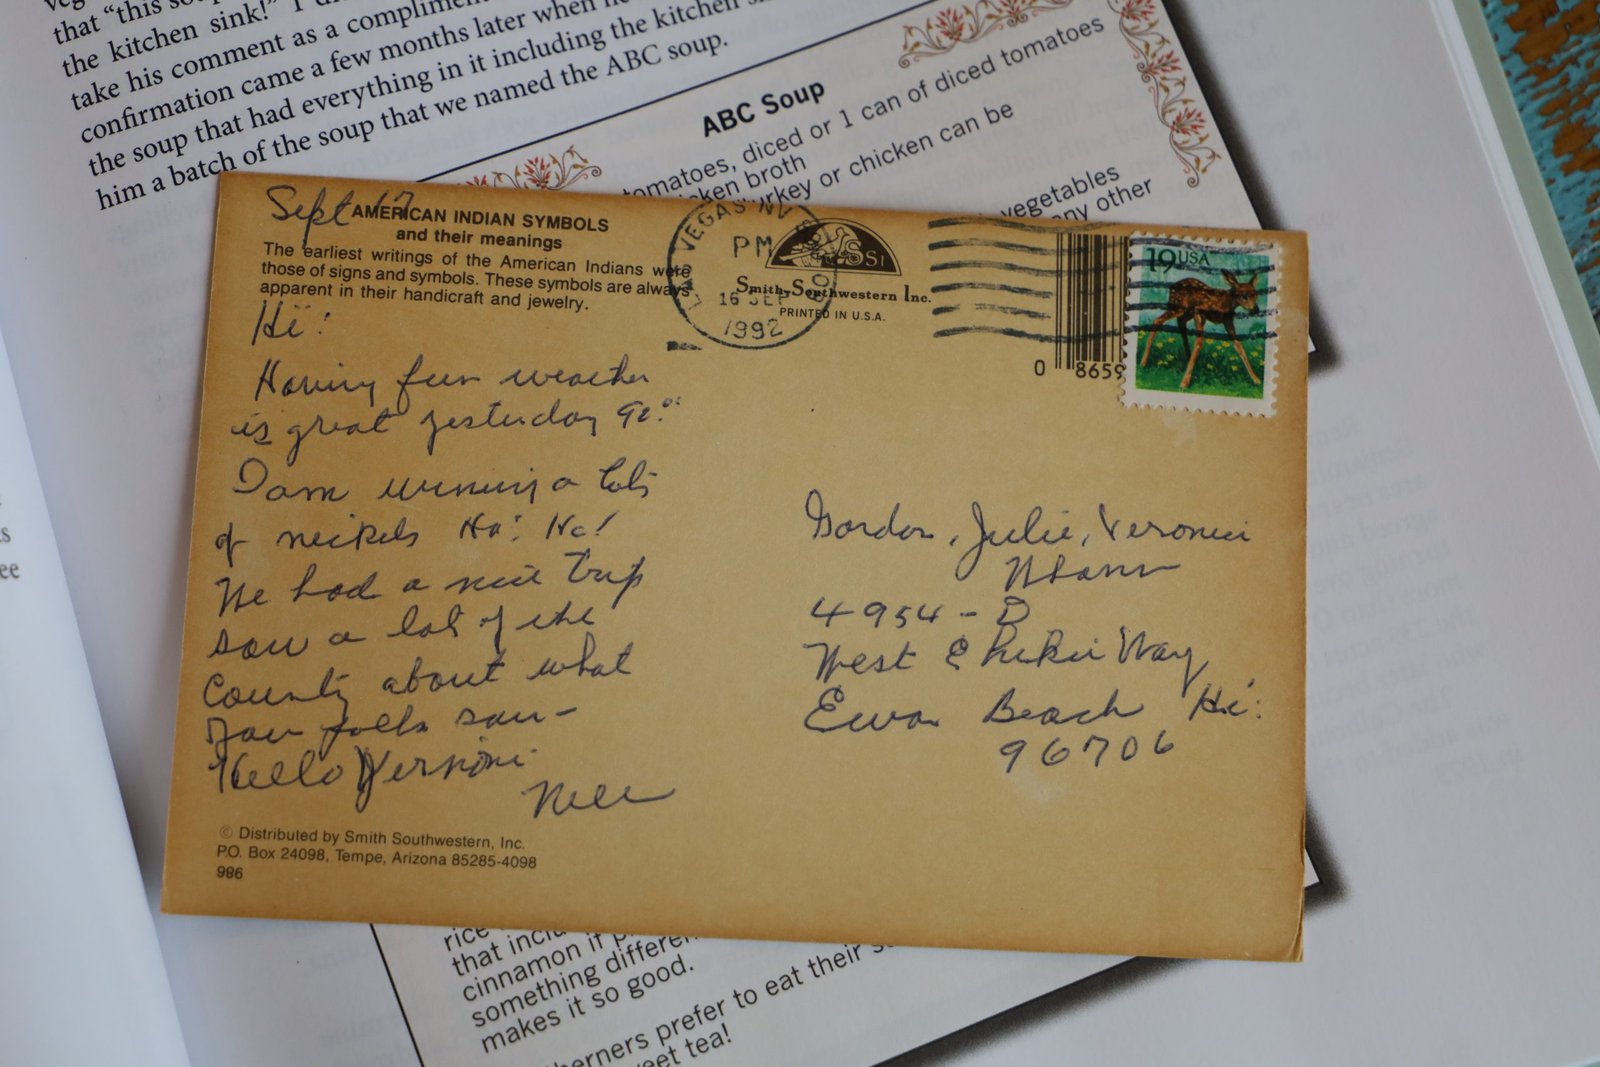 that "this sou
the kitchen sink!" I di
take his comment as a complimen
confirmation came a few months later when he
the soup that had everything in it including the kitchen s
him a batch of the soup that we named the ABC soup.
ABC Soup
tomatoes, diced or 1 can of diced tomatoes
icken broth
urkey or chicken can be
vegetables
any other
Sept 17
AMERICAN INDIAN SYMBOLS
and their meanings
The earliest writings of the American Indians were
those of signs and symbols. These symbols are always
apparent in their handicraft and jewelry.
LAS VEGAS NV
PM
16 SEP
1992
SSI
Smith-Southwestern Inc.
PRINTED IN U.S.A.
0 8659
19 USA
Hi!
Having fun weather
is great yesterday 90°
I am winning a lots
of nickels Ha! Ha!
We had a nice trip
saw a lot of the
County about what
you folks saw-
Hello
Gordon, Julie,
4954-D
West Way
Ewa Beach Hi:
96706
© Distributed by Smith Southwestern, Inc.
P.O. Box 24098, Tempe, Arizona 85285-4098
986
rice
that inclu
cinnamon if p
something differen
makes it so good.
herners prefer to eat their s
eet tea!
ee